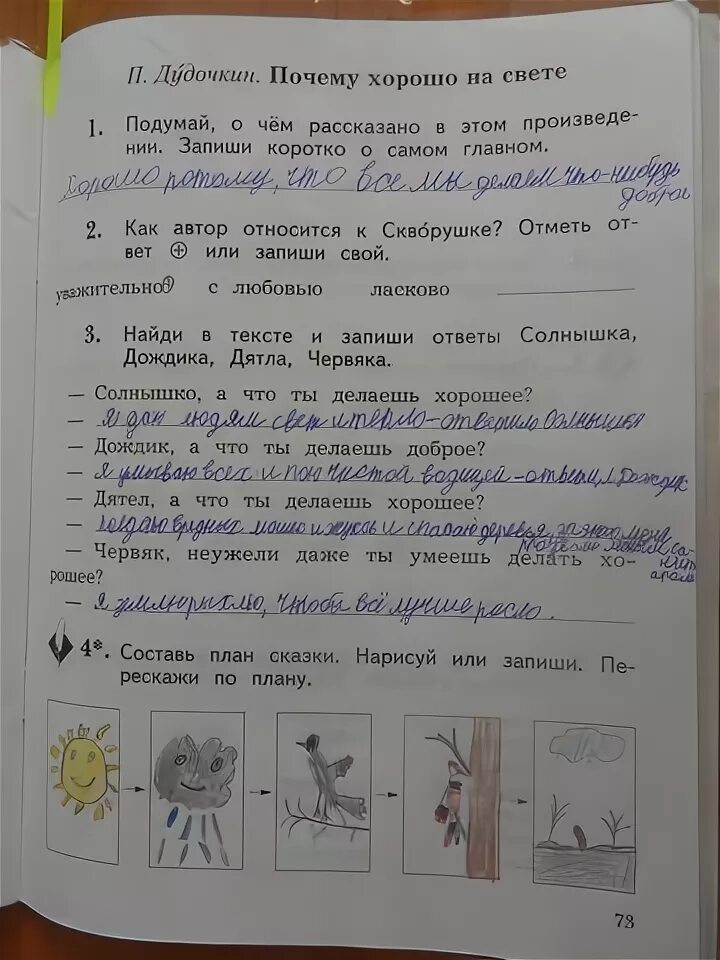 П. Ду́дочкин. Почему хорошо на свете
1. Подумай, о чём рассказано в этом произведе-
нии. Запиши коротко о самом главном.
Хорошо потому, что все мы делаем что-нибудь
доброе
2. Как автор относится к Скво́рушке? Отметь от-
вет ⊕ или запиши свой.
уважительно с любовью ласково
3. Найди в тексте и запиши ответы Солнышка,
Дождика, Дятла, Червяка.
— Солнышко, а что ты делаешь хорошее?
— Я даю людям свет и тепло - ответило Солнышко
— Дождик, а что ты делаешь доброе?
— Я умываю всех и пою чистой водицей - ответил Дождик
— Дятел, а что ты делаешь хорошее?
— поедаю вредных мошек и жуков и спасаю деревья, за это меня
лесным са-
нит
аром
— Червяк, неужели даже ты умеешь делать хо-
рошее?
— Я землю рыхлю, чтобы всё лучше росло.
4*. Составь план сказки. Нарисуй или запиши. Пе-
рескажи по плану.
73